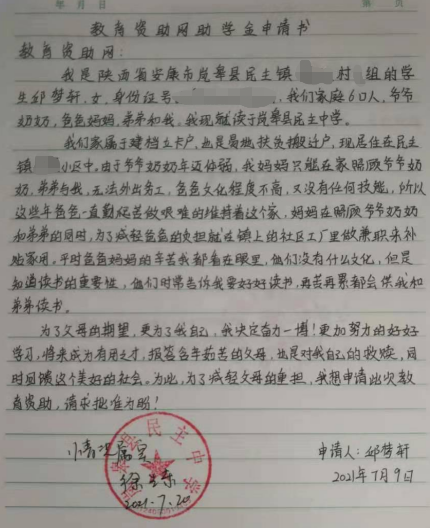 年 月 日 第 页
教育资助网助学金申请书
教育资助网:
我是陕西省安康市岚皋县民主镇 村 组的学
生邱梦轩,女,身份证号 ,我们家庭6口人,爷爷
奶奶,爸爸妈妈,弟弟和我,我现就读于岚皋县民主中学。
我们家属于建档立卡户,也是易地扶贫搬迁户,现居住在民主
镇 小区中。由于爷爷奶奶年迈体弱,我妈妈只能在家照顾爷爷奶
奶,弟弟与我,无法外出务工,爸爸文化程度不高,又没有任何技能,所以
这些年爸爸一直勤俭苦做艰难的维持着这个家,妈妈在照顾爷爷奶奶
和弟弟的同时,为了减轻爸爸的负担就在镇上的社区工厂里做兼职来补
贴家用,平时爸爸妈妈的辛苦我都看在眼里,他们没有什么文化,但是
知道读书的重要性,他们时常告诉我要好好读书,再苦再累都会供我和
弟弟读书。
为了父母的期望,更为了我自己,我决定奋力一搏!更加努力的好好
学习,将来成为有用之才,报答含辛茹苦的父母,也是对我自己的救赎,同
时回馈这个美好的社会。为此,为了减轻父母的重担,我想申请此次教
育资助,请求批准为盼!
情况属实
民主中学
2021.7.20
申请人:邱梦轩
2021年7月9日